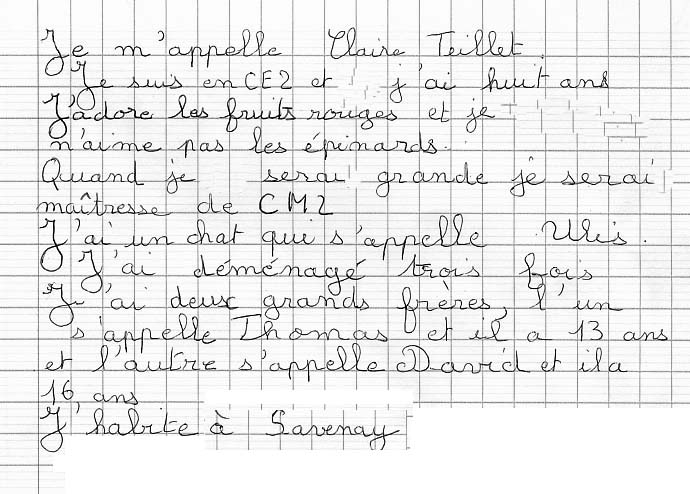 Je m'appelle Claire Teillet.
Je suis en CE2 et j'ai huit ans
J'adore les fruits rouges et je
n'aime pas les épinards.
Quand je serai grande je serai
maîtresse de CM2
J'ai un chat qui s'appelle Ulis.
J'ai déménagé trois fois
J'ai deux grands frères, l'un
s'appelle Thomas et il a 13 ans
et l'autre s'appelle David et il a
16 ans
J'habite à Savenay